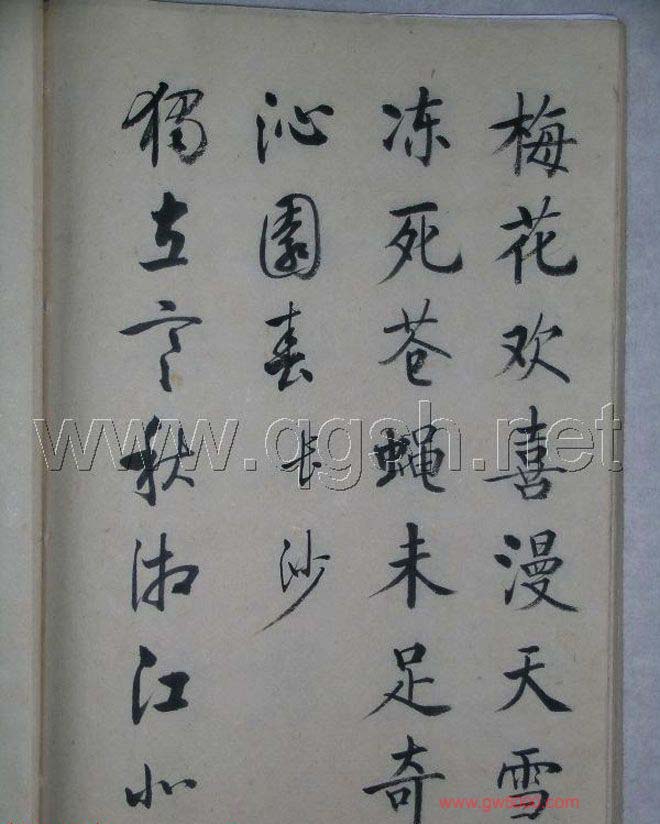 梅花欢喜漫天雪
冻死苍蝇未足奇
沁園春 长沙
獨立寒秋湘江北
www.qgsh.net